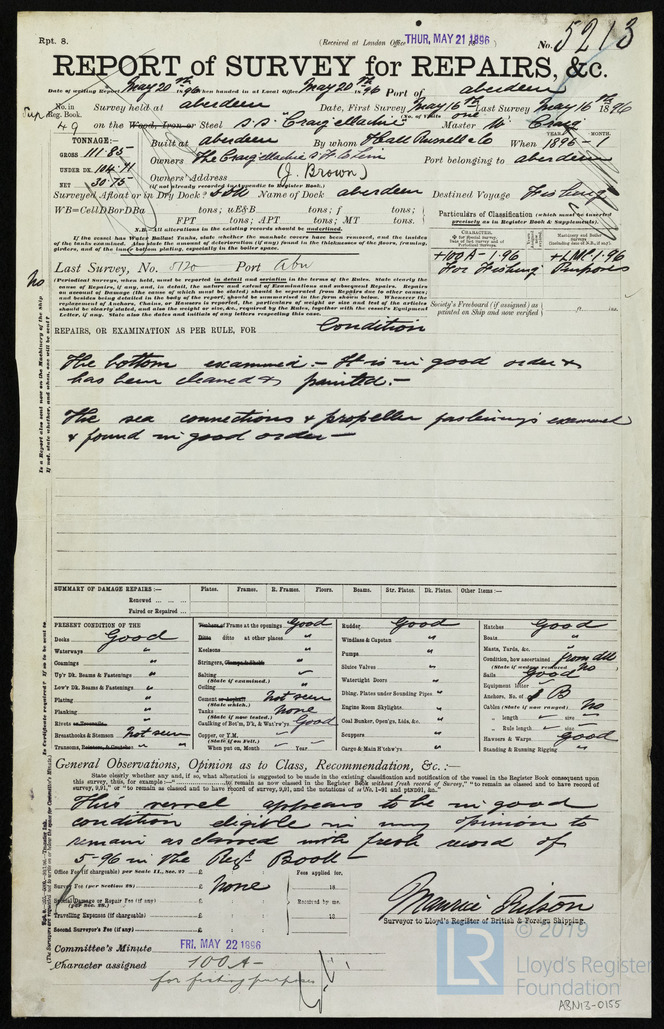 Rpt. 8.
(Received at London Office THUR, MAY 21 1896
No. 5213
REPORT of SURVEY for REPAIRS, &c.
Date of writing Report May 20th 1896 When handed in at Local Office May 20th 1896 Port of aberdeen
No. in Survey held at aberdeen Date, First Survey May 16th Last Survey May 16th 1896
Reg. Book. (No. of Visits one)
49 on the Wood, Iron or Steel S.S. "Craig ellachie" Master W. Craig
TONNAGE:— YEAR. MONTH.
GROSS 111.85 Built at aberdeen By whom Hall Russell & Co When 1896 - 1
UNDER DK. 104.71 Owners The Craigellachie Port belonging to aberdeen
NET 30.75 Owners' Address (J. Brown)
(if not already recorded in Appendix to Register Book.)
Surveyed Afloat or in Dry Dock? Name of Dock aberdeen Destined Voyage Fishing
WB=CellDBorDBa tons; uE&B tons; f tons;
FPT tons; APT tons; MT tons.
N.B.—All alterations in the existing records should be underlined.
If the vessel has Water Ballast Tanks, state whether the manhole covers have been removed, and the insides
of the tanks examined. Also state the amount of deterioration (if any) found in the thickness of the floors, framing,
girders, and of the inner bottom plating, especially in the boiler space.
Particulars of Classification (which must be inserted
precisely as in Register Book & Supplements).
CHARACTER.
+100A-1.96 +LMC 1.96
For Fishing Purposes
Last Survey, No. 5120 Port Abn
(Periodical Surveys, when held, must be reported in detail and seriatim in the terms of the Rules. State clearly the
cause of Repairs, if any, and, in detail, the nature and extent of Examinations and subsequent Repairs. Repairs
on account of Damage (the cause of which must be stated) should be separated from Repairs due to other causes;
and besides being detailed in the body of the report, should be summarised in the form shown below. Whenever the
replacement of Anchors, Chains, or Hawsers is reported, the particulars of weight or size and test of the articles
should be clearly stated, and also the weight or size, &c., required by the Rules, together with the vessel's Equipment
Letter, if any. State also the dates and initials of any letters respecting this case.
Society's Freeboard (if assigned) as
painted on Ship and now verified ft. ins.
REPAIRS, OR EXAMINATION AS PER RULE, FOR Condition
The bottom examined - It is in good order &
has been cleaned & painted.-
The sea connections & propeller fastenings examined
& found in good order -
No
Is a Report also sent now on the Machinery of the ship
If not, state whether, and when, one will be sent?
SUMMARY OF DAMAGE REPAIRS:— Plates. Frames. R. Frames. Floors. Beams. Str. Plates. Dk. Plates. Other Items:—
Renewed ... ... ...
Faired or Repaired ...
PRESENT CONDITION OF THE
Decks Good
Waterways "
Coamings "
Up'r Dk. Beams & Fastenings "
Low'r Dk. Beams & Fastenings "
Plating "
Planking
Rivets or Treenails "
Breasthooks & Stemson Not seen
Transoms, Pointers, & Crutches " "
Timbers of Frame at the openings Good
Ditto ditto at other places "
Keelsons "
Stringers, Clamps & Shelfs "
Salting
(State if examined.)
Ceiling "
Cement or Asphalt Not seen
(State which.)
Tanks None
(State if now tested.)
Caulking of Bot'm, D'k, & Wat'rw'ys Good
Copper, or Y.M.
(State if on Felt.)
When put on, Month Year
Rudder Good
Windlass & Capstan "
Pumps "
Sluice Valves "
Watertight Doors "
Dblng. Plates under Sounding Pipes "
Engine Room Skylights. "
Coal Bunker, Open'gs, Lids, &c. "
Scuppers "
Cargo & Main H'tchw'ys "
Hatches Good
Boats "
Masts, Yards, &c. "
Condition, how ascertained from dk
(State if wedges removed) No
Sails Good
Equipment letter
Anchors, No. of 1 B
Cables (State if now ranged) No
" length size
" Rule length size
Hawsers & Warps Good
Standing & Running Rigging "
Is Certificate required? If so to be sent to
General Observations, Opinion as to Class, Recommendation, &c.:—
State clearly whether any, and if so, what alteration is suggested to be made in the existing classification and notification of the vessel in the Register Book consequent upon
this survey, thus, for example:—" to remain as now classed in the Register Book without fresh record of Survey," "to remain as classed and to have record of
survey, 9,91," or "to remain as classed and to have record of survey, 9,91, and the notations of
This vessel appears to be in good
condition eligible in my opinion to
remain as classed with fresh record of
5-96 in the Regr. Book -
Office Fee (if chargeable) per Scale II., Sec. 27 ... £ Fees applied for,
Survey Fee (per Section 28) £ None 18
Special Damage or Repair Fee (if any) £
(per Sec. 28.) Received by me,
Travelling Expenses (if chargeable) £ 18
Second Surveyor's Fee (if any) £
Maurice
Surveyor to Lloyd's Register of British & Foreign Shipping.
Committee's Minute FRI. MAY 22 1896
Character assigned 100A-
for fishing purposes
© 2019
LR
Lloyd's Register
Foundation
ABN13-0155